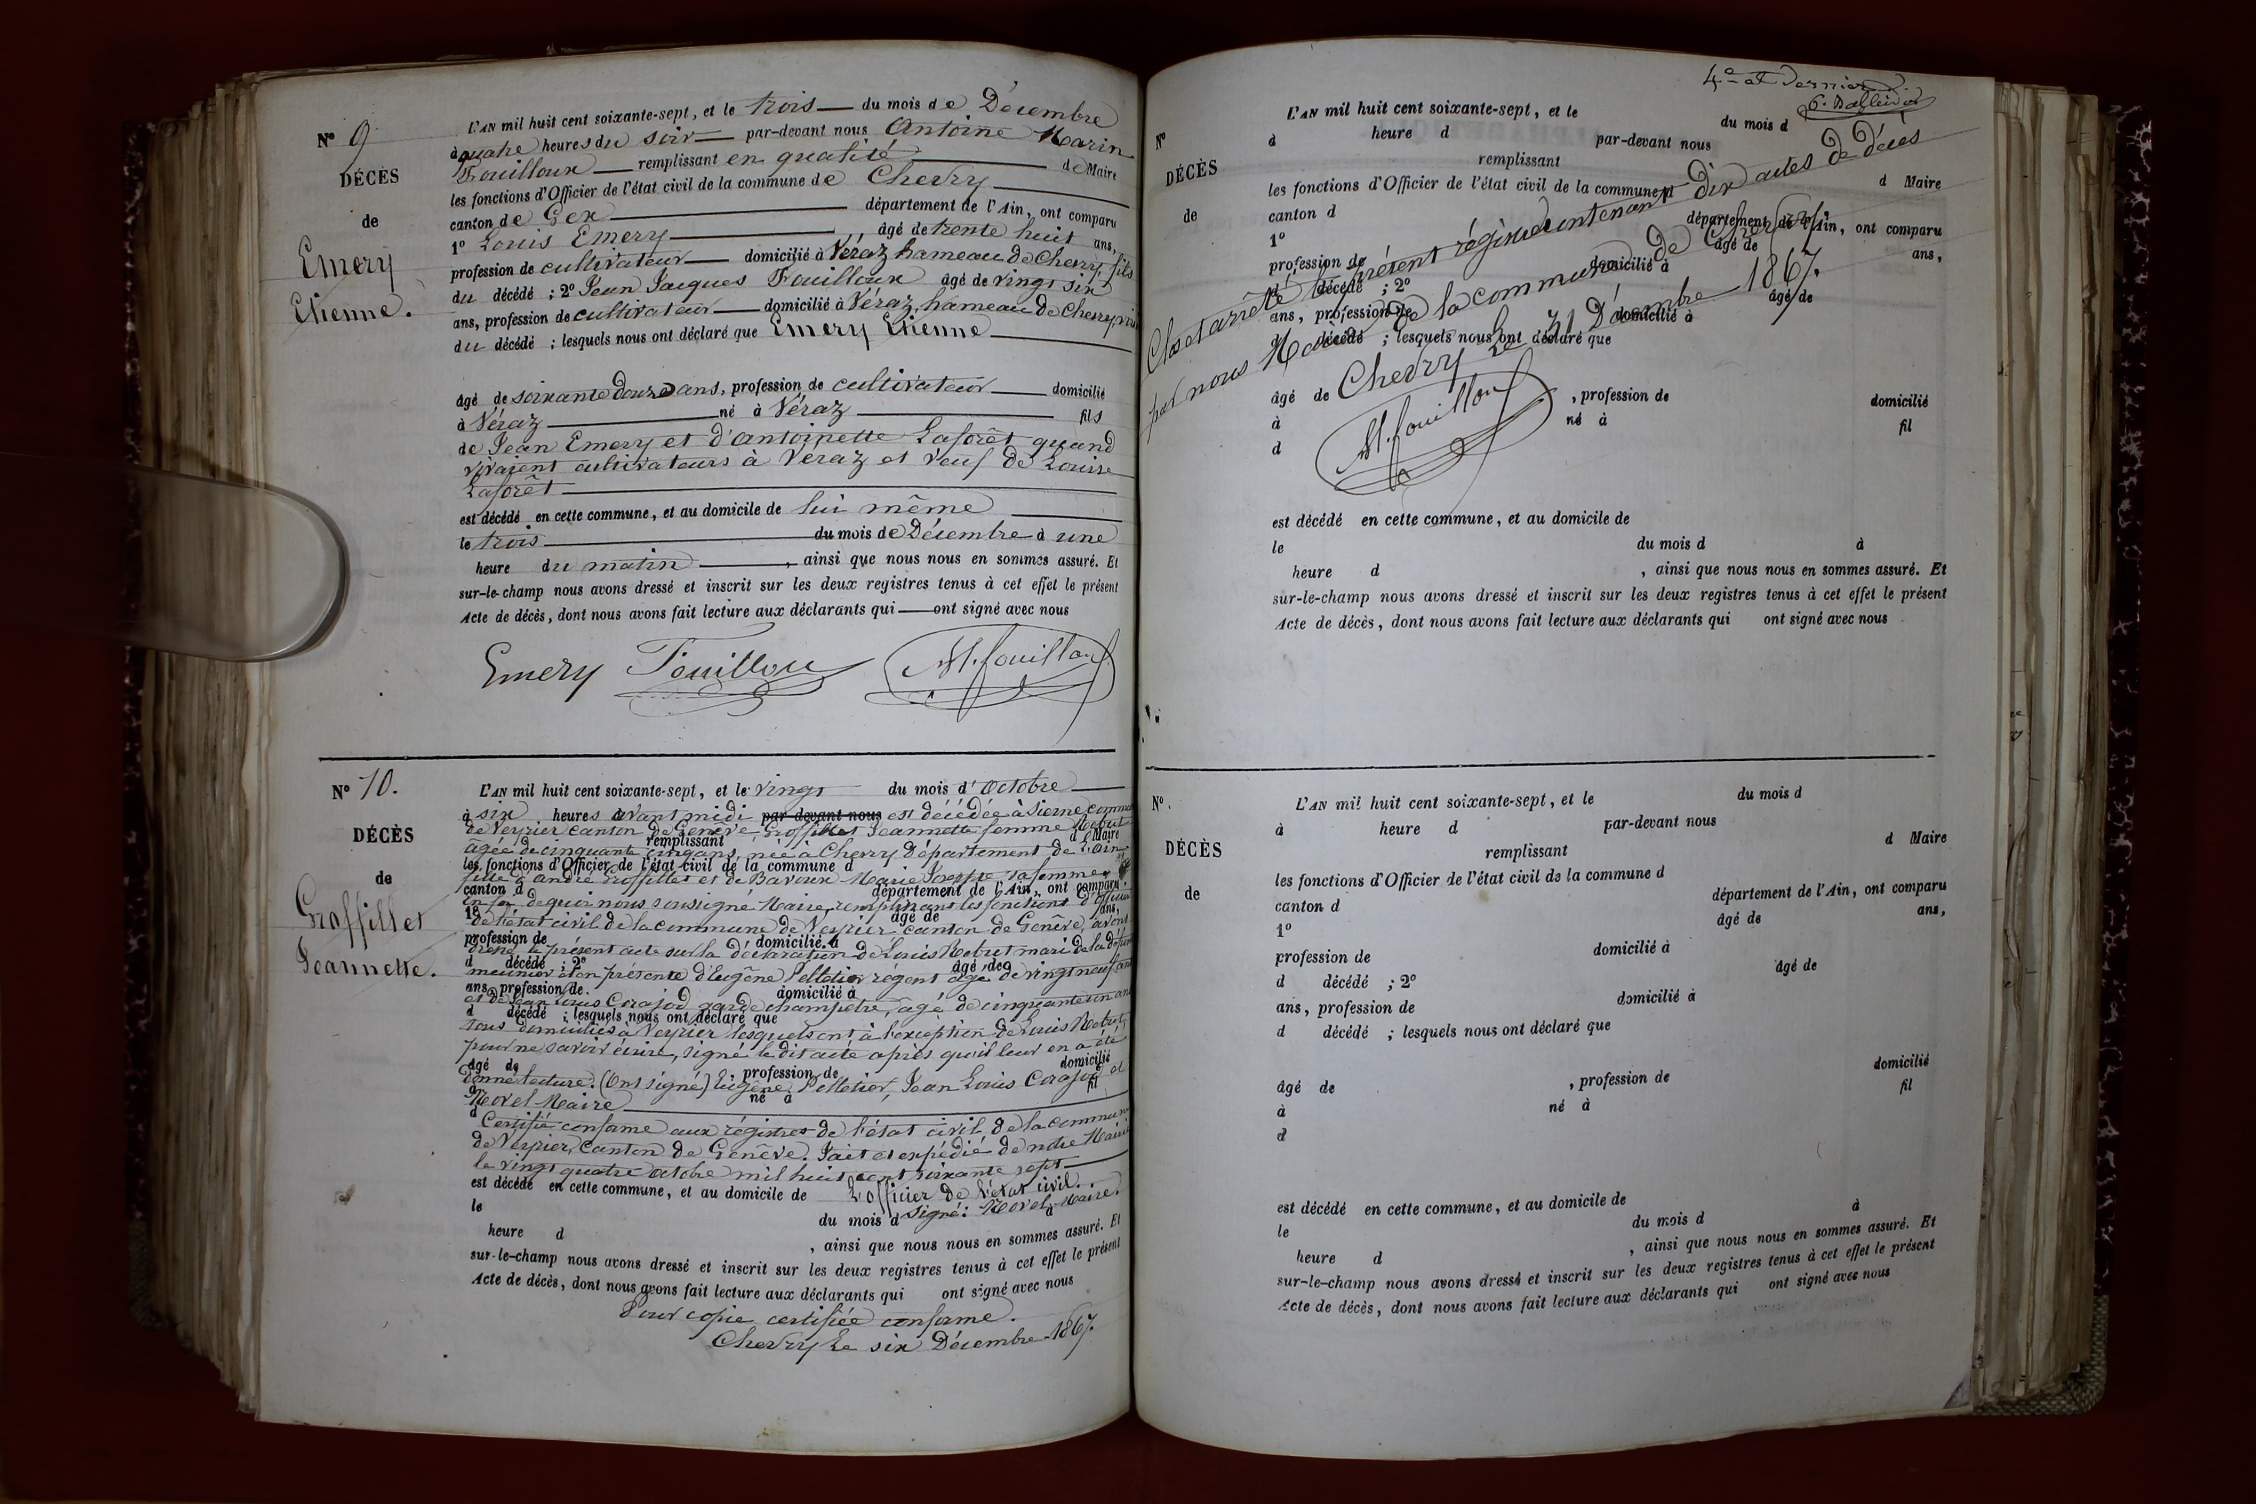 N° 9
DÉCÈS
de
Emery
Etienne.
L'AN mil huit cent soixante-sept, et le trois du mois de Décembre
à quatre heures du soir par-devant nous Antoine Marin
Fouilloux remplissant en qualité de Maire
les fonctions d'Officier de l'état civil de la commune de Chevry
canton de Gex département de l'Ain, ont comparu
1° Louis Emery âgé de trente huit ans,
profession de cultivateur domicilié à Véraz hameau de Chevry, fils
du décédé ; 2° Jean Jacques Fouilloux âgé de vingt six
ans, profession de cultivateur domicilié à Véraz, hameau de Chevry,
du décédé ; lesquels nous ont déclaré que Emery Etienne
âgé de soixante douze ans, profession de cultivateur domicilié
à Véraz né à Véraz fils
de Jean Emery et d'antoinette Laforêt quand
vivaient cultivateurs à Veraz et veuf de Louise
Laforêt
est décédé en cette commune, et au domicile de lui même
le trois du mois de Décembre à une
heure du matin, ainsi que nous nous en sommes assuré. Et
sur-le-champ nous avons dressé et inscrit sur les deux registres tenus à cet effet le présent
Acte de décès, dont nous avons fait lecture aux déclarants qui ont signé avec nous
Emery Fouilloux M. fouilloux
N° 10.
DÉCÈS
de
Groffillet
Jeannette.
L'AN mil huit cent soixante-sept, et le vingt du mois d'Octobre
à six heures avant midi par-devant nous est décédée à Sierne
de Veyrier canton de Genève Groffillet Jeannette femme
remplissant d Maire
âgée de cinquante cinq ans, née à Chevry Département de l'ain
les fonctions d'Officier de l'état civil de la commune d
fille d'andré Groffillet et de Bavoux Marie Josephte sa femme
canton d département de l'Ain, ont comparu
En foi de quoi nous soussigné Maire, remplissant les fonctions d'officier
1° âgé de ans,
de l'état civil de la commune de Veyrier canton de Genève, avons
profession de domicilié à
dressé le présent acte sur la déclaration de Louis mari de la
d décédé ; 2° âgé de
meunier et en présence d'Eugène Pelletier régent âgé de vingt neuf ans
ans, profession de domicilié à
et de Jean Louis Corajod garde champêtre, âgé de cinquante un ans
d décédé ; lesquels nous ont déclaré que
tous domiciliés à Veyrier lesquels ont à l'exception de Louis
pour ne savoir écrire, signé le dit acte après qu'il leur en a été
âgé de , profession de domicilié
donné lecture. (Ont signé) Eugène Pelletier, Jean Louis Corajod et
à né à fil
Morel Maire
d
Certifié conforme aux régistres de l'état civil de la commune
de Veyrier, Canton de Genève. Fait et expédié de notre Mairie
le vingt quatre octobre mil huit cent soixante sept
est décédé en cette commune, et au domicile de L'officier de l'état civil.
le du mois d à signé: Morel, Maire.
heure d , ainsi que nous nous en sommes assuré. Et
sur-le-champ nous avons dressé et inscrit sur les deux registres tenus à cet effet le présent
Acte de décès, dont nous avons fait lecture aux déclarants qui ont signé avec nous
Pour copie certifiée conforme.
Chevry le six Décembre 1867.
4e et dernier
N°
DÉCÈS
de
L'AN mil huit cent soixante-sept, et le du mois d
à heure d par-devant nous
remplissant d Maire
les fonctions d'Officier de l'état civil de la commune d
canton d département de l'Ain, ont comparu
1° âgé de ans,
profession de domicilié à
d décédé ; 2° âgé de
ans, profession de domicilié à
d décédé ; lesquels nous ont déclaré que
Clos et arrêté le présent régistre contenant dix actes de décès
par nous Maire de la commune de Chevry
Chevry le 31 Décembre 1867.
M. fouilloux
âgé de , profession de domicilié
à né à fil
d
est décédé en cette commune, et au domicile de
le du mois d à
heure d , ainsi que nous nous en sommes assuré. Et
sur-le-champ nous avons dressé et inscrit sur les deux registres tenus à cet effet le présent
Acte de décès, dont nous avons fait lecture aux déclarants qui ont signé avec nous
N°
DÉCÈS
de
L'AN mil huit cent soixante-sept, et le du mois d
à heure d par-devant nous
remplissant d Maire
les fonctions d'Officier de l'état civil de la commune d
canton d département de l'Ain, ont comparu
1° âgé de ans,
profession de domicilié à
d décédé ; 2° âgé de
ans, profession de domicilié à
d décédé ; lesquels nous ont déclaré que
âgé de , profession de domicilié
à né à fil
d
est décédé en cette commune, et au domicile de
le du mois d à
heure d , ainsi que nous nous en sommes assuré. Et
sur-le-champ nous avons dressé et inscrit sur les deux registres tenus à cet effet le présent
Acte de décès, dont nous avons fait lecture aux déclarants qui ont signé avec nous